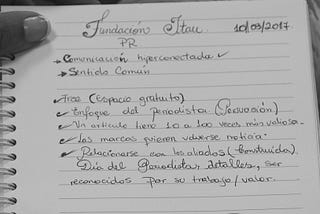 Fundación Itau 10/03/2017
PR
→ Comunicación hiperconectada ✓
→ Sentido Común
✓ Free (Espacio gratuito)
✓ Enfoque del periodista (Persuasión)
✓ Un artículo tiene 10 a 100 veces más valiosa.
✓ Las marcas quieren volverse noticia.
✓ Relacionarse con los aliados (Construida).
Día del Periodista, detalles, ser
reconocidos por su trabajo/valor.